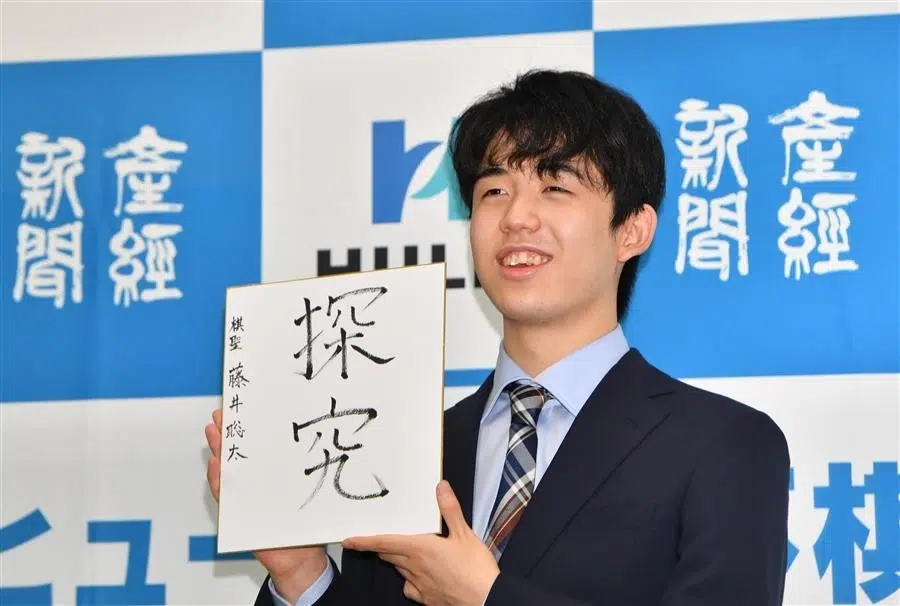 産經
新聞
産經
新聞
探究
棋聖 藤井聡太
ヒュー
棋